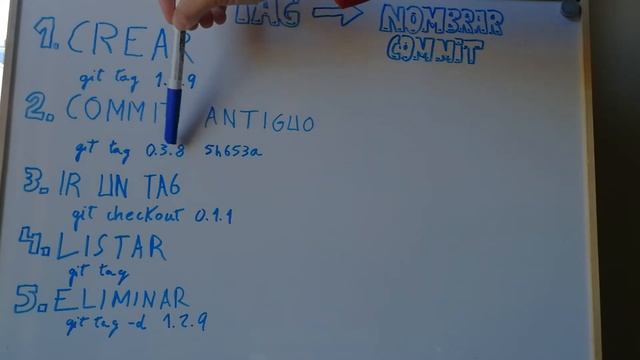 TAG → NOMBRAR
COMMIT
1. CREAR
git tag 1.2.9
2. COMMIT ANTIGUO
git tag 0.3.8 5h653a
3. IR UN TAG
git checkout 0.1.1
4. LISTAR
git tag
5. ELIMINAR
git tag -d 1.2.9